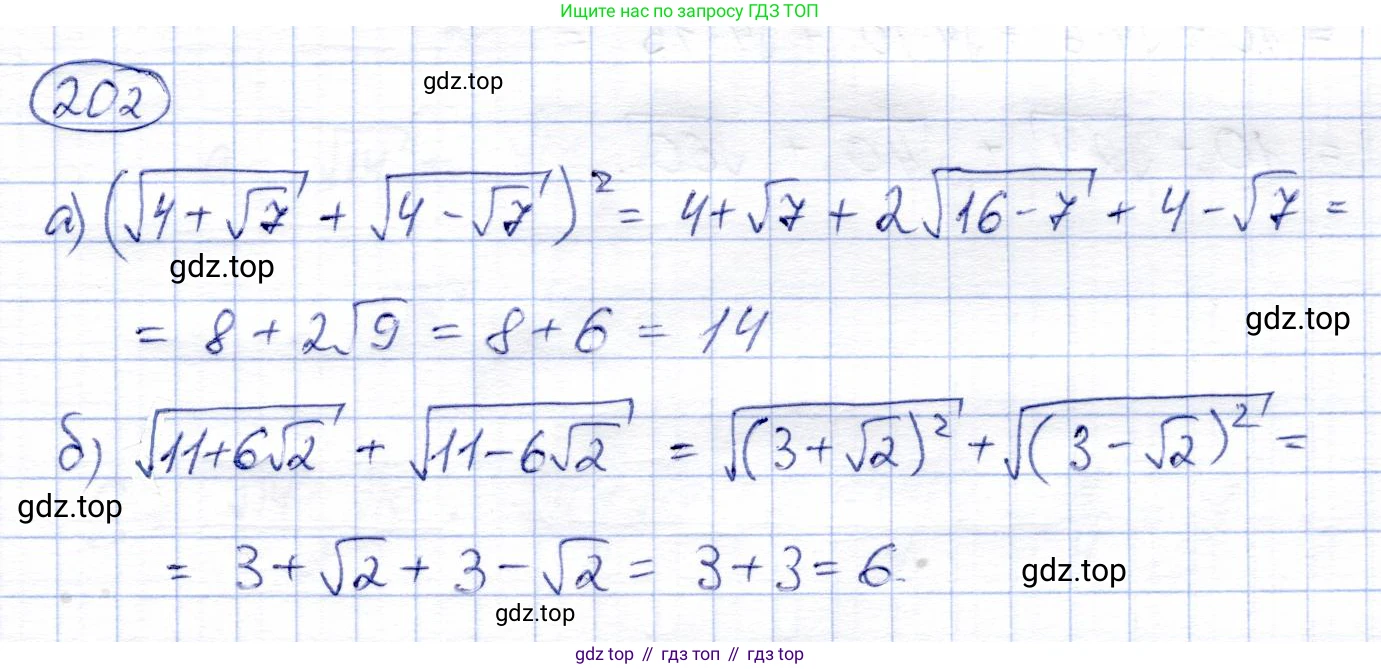 Ищите нас по запросу ГДЗ ТОП
202
gdz.top
а) (√(4+√7) + √(4-√7))² = 4+√7 + 2√(16-7) + 4-√7 =
gdz.top
= 8 + 2√9 = 8+6 = 14
gdz.top
б) √(11+6√2) + √(11-6√2) = √((3+√2)²) + √((3-√2)²) =
gdz.top
= 3+√2 + 3-√2 = 3+3=6.
gdz.top
gdz.top
gdz top // гдз топ // гдз top